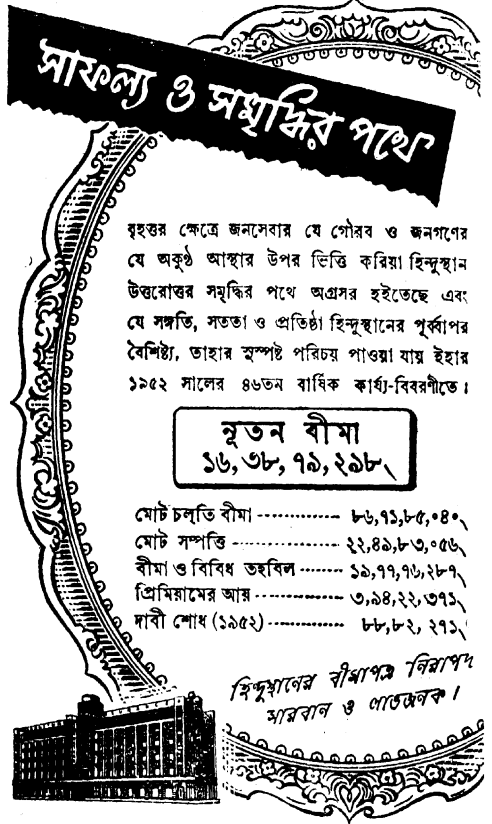 সাফল্য ও সমৃদ্ধির পথে
বৃহত্তর ক্ষেত্রে জনসেবার যে গৌরব ও জনগণের
যে অকুণ্ঠ আস্থার উপর ভিত্তি করিয়া হিন্দুস্থান
উত্তরোত্তর সমৃদ্ধির পথে অগ্রসর হইতেছে এবং
যে সঙ্গতি, সততা ও প্রতিষ্ঠা হিন্দুস্থানের পূর্ব্বাপর
বৈশিষ্ট্য, তাহার সুস্পষ্ট পরিচয় পাওয়া যায় ইহার
১৯৫২ সালের ৪৬তন বার্ষিক কার্য্য-বিবরণীতে।
নূতন বীমা
১৬,৩৮,৭৯,২৯৮৲
মোট চল্‌তি বীমা ------------ ৮৬,৭১,৮৫,০৪০৲
মোট সম্পত্তি -------------- ২২,৪৯,৮৩,০৫৬৲
বীমা ও বিবিধ তহবিল -------- ১৯,৭৭,৭৬,২৮৭৲
প্রিমিয়ামের আয় ------------ ৩,৯৪,২২,৩৭১৲
দাবী শোধ (১৯৫২) ----------- ৮৮,৮২,২৭১৲
হিন্দুস্থানের বীমাপত্র নিরাপদ
সারবান ও লাভজনক।